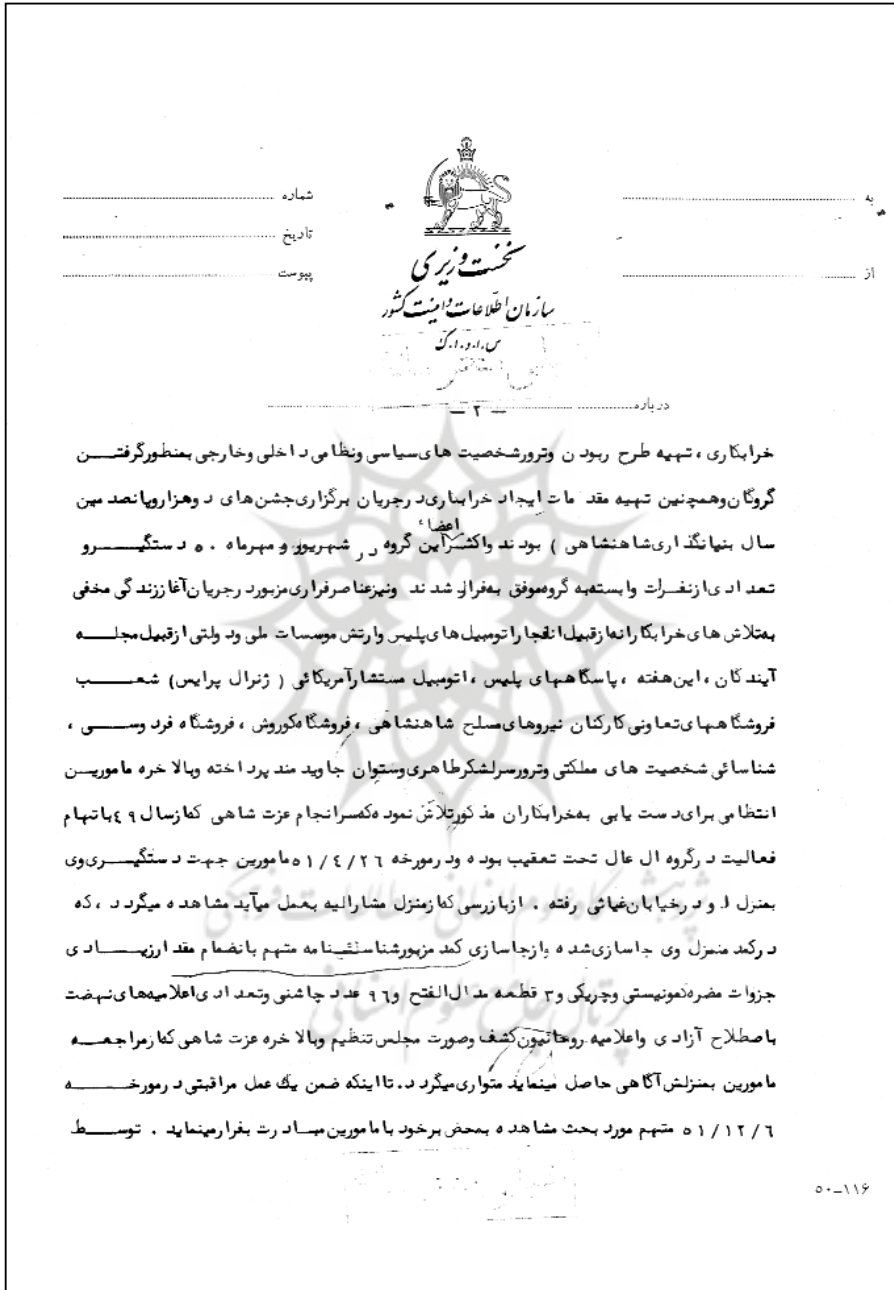 به
شماره
تاریخ
از
پیوست
نخست وزیری
سازمان اطلاعات و امنیت کشور
س.ا.و.ا.ک
درباره
— ۲ —
خرابکاری ، تهیه طرح ربودن وترورشخصیت های سیاسی ونظامی داخلی وخارجی بمنظورگرفتن
گروگان وهمچنین تهیه مقدمات ایجاد خرابکاری درجریان برگزاری جشن های دوهزاروپانصدمین
سال بنیانگذاری شاهنشاهی ) بودند واکثر اعضاء این گروه در شهریور و مهرماه ۵۰ دستگیرو
تعدادی ازنفرات وابسته به گروه موفق به فرار شدند ونیزعناصرفراری مزبور درجریان آغاز زندگی مخفی
به تلاش های خرابکارانه ازقبیل انفجار اتومبیل های پلیس وارتش موسسات ملی ودولتی ازقبیل مجله
آیندگان ، این هفته ، پاسگاههای پلیس ، اتومبیل مستشارآمریکائی ( ژنرال پرایس ) شعب
فروشگاههای تعاونی کارکنان نیروهای مسلح شاهنشاهی ، فروشگاه کوروش ، فروشگاه فردوسی ،
شناسائی شخصیت های مملکتی وترورسرلشکرطاهری وستوان جاویدمند پرداخته وبالاخره مامورین
انتظامی برای دست یابی به خرابکاران مذکورتلاش نموده که سرانجام عزت شاهی که ازسال ۴۹ باتهام
فعالیت درگروه ال عال تحت تعقیب بوده ودرمورخه ۵۱/۴/۲۶ مامورین جهت دستگیری وی
بمنزل او درخیابان غیاثی رفته . ازبازرسی که ازمنزل مشارالیه بعمل میآید مشاهده میگردد ، که
درکمد منزل وی جاسازی شده وازجاسازی کمد مزبورشناسنامه متهم بانضمام مقدارزیادی
جزوات مضره کمونیستی وچریکی و۳ قطعه مدال الفتح و۹۶ عدد چاشنی وتعدادی اعلامیه های نهضت
باصطلاح آزادی واعلامیه روحانیون کشف وصورت مجلس تنظیم وبالاخره عزت شاهی که ازمراجعه
مامورین بمنزلش آگاهی حاصل مینماید متواری میگردد. تااینکه ضمن یک عمل مراقبتی درمورخه
۵۱/۱۲/۶ متهم مورد بحث مشاهده بمحض برخورد بامامورین مبادرت بفرارمینماید . توسط
۵۰-۱۱۶
پژوهشگاه علوم انسانی و مطالعات فرهنگی
پرتال جامع علوم انسانی